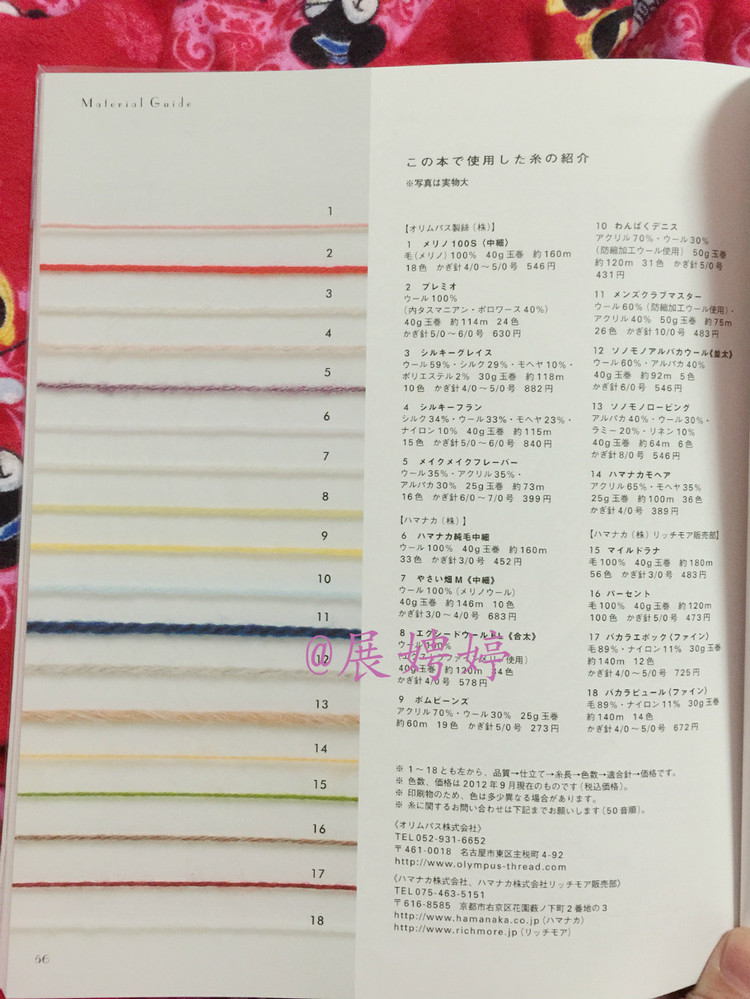 Material Guide
1
2
3
4
5
6
7
8
9
10
11
12
13
14
15
16
17
18
66
この本で使用した糸の紹介
※写真は実物大
【オリムパス製絲(株)】
1 メリノ100S(中細)
毛(メリノ)100% 40g玉巻 約160m
18色 かぎ針4/0～5/0号 546円
2 プレミオ
ウール100%
(内タスマニアン・ポロワース40%)
40g玉巻 約114m 24色
かぎ針5/0～6/0号 630円
3 シルキーグレイス
ウール59%・シルク29%・モヘヤ10%・
ポリエステル2% 30g玉巻 約118m
10色 かぎ針4/0～5/0号 882円
4 シルキーフラン
シルク34%・ウール33%・モヘヤ23%・
ナイロン10% 40g玉巻 約115m
15色 かぎ針5/0～6/0号 840円
5 メイクメイクフレーバー
ウール35%・アクリル35%・
アルパカ30% 25g玉巻 約73m
16色 かぎ針6/0～7/0号 399円
【ハマナカ(株)】
6 ハマナカ純毛中細
ウール100% 40g玉巻 約160m
33色 かぎ針3/0号 452円
7 やさい畑M《中細》
ウール100%(メリノウール)
40g玉巻 約146m 10色
かぎ針3/0～4/0号 683円
8 エクシードウールFL《合太》
ウール100%
使用)
40g玉巻 約120m
かぎ針4/0号 578円
9 ボムビーンズ
アクリル70%・ウール30% 25g玉巻
約60m 19色 かぎ針5/0号 273円
10 わんぱくデニス
アクリル70%・ウール30%
(防縮加工ウール使用) 50g玉巻
約120m 31色 かぎ針5/0号
431円
11 メンズクラブマスター
ウール60%(防縮加工ウール使用)・
アクリル40% 50g玉巻 約75m
26色 かぎ針10/0号 483円
12 ソノモノアルパカウール《並太》
ウール60%・アルパカ40%
40g玉巻 約92m 5色
かぎ針6/0号 546円
13 ソノモノロービング
アルパカ40%・ウール30%・
ラミー20%・リネン10%
40g玉巻 約64m 6色
かぎ針8/0号 546円
14 ハマナカモヘア
アクリル65%・モヘヤ35%
25g玉巻 約100m 36色
かぎ針4/0号 389円
【ハマナカ(株)リッチモア販売部】
15 マイルドラナ
毛100% 40g玉巻 約180m
56色 かぎ針3/0号 483円
16 パーセント
毛100% 40g玉巻 約120m
100色 かぎ針5/0号 473円
17 バカラエポック(ファイン)
毛89%・ナイロン11% 30g玉巻
約140m 12色
かぎ針4/0～5/0号 725円
18 バカラピュール(ファイン)
毛89%・ナイロン11% 30g玉巻
約140m 14色
かぎ針4/0～5/0号 672円
※ 1～18とも左から、品質→仕立て→糸長→色数→適合針→価格です。
※ 色数、価格は2012年9月現在のものです(税込価格)。
※ 印刷物のため、色は多少異なる場合があります。
※ 糸に関するお問い合わせは下記までお願いします(50音順)。
〈オリムパス株式会社〉
TEL052-931-6652
〒461-0018 名古屋市東区主税町4-92
http://www.olympus-thread.com
〈ハマナカ株式会社、ハマナカ株式会社リッチモア販売部〉
TEL075-463-5151
〒616-8585 京都市右京区花園薮ノ下町2番地の3
http://www.hamanaka.co.jp(ハマナカ)
http://www.richmore.jp(リッチモア)
@展娉婷